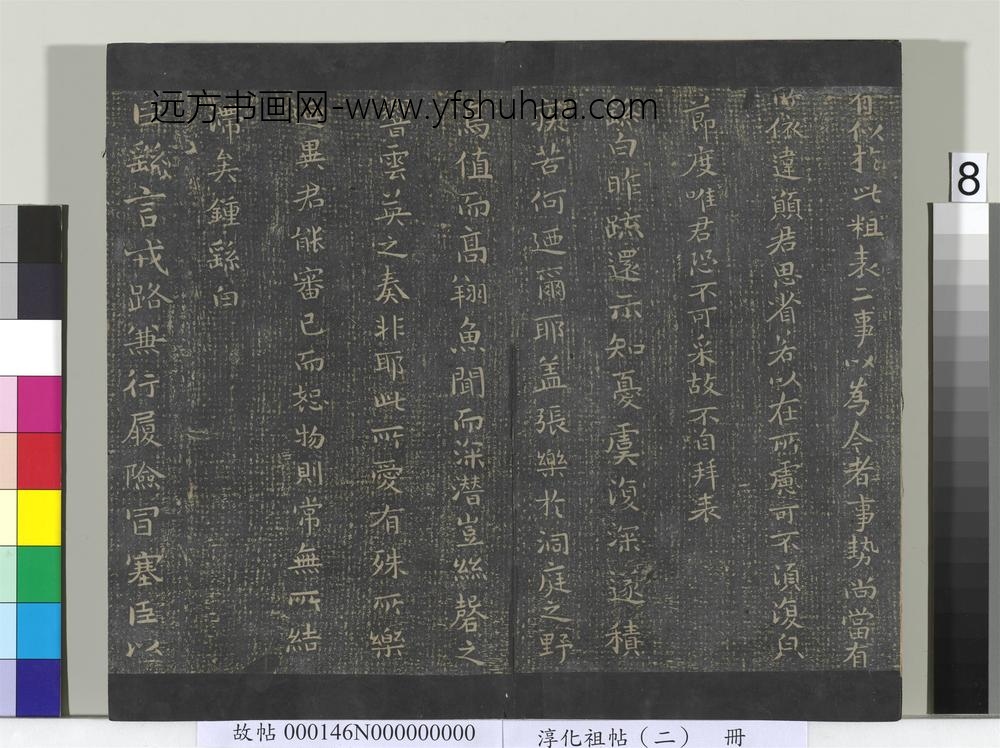 远方书画网-www.yfshuhua.com
有似於此粗表二事以為今者事勢尚當有
所依違願君思省若以在所慮可不須復白
節度唯君恐不可采故不自拜表
繇白昨疏還示知憂虞復深遂積
疾苦何迺爾耶盖張樂於洞庭之野
鳥值而高翔魚聞而深潜豈絲磬之
音雲英之奏非耶此所愛有殊所樂
迺異君能審己而恕物則常無所結
滯矣鍾繇白
臣繇言戎路兼行履險冒寒臣以
8
故帖 000146N000000000
淳化祖帖（二） 冊